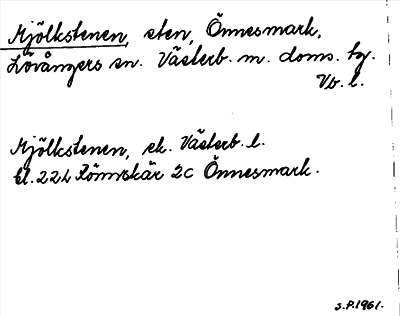 Mjölkstenen, sten, Önnesmark,
Lövångers sn. Västerb. m. doms. tg.
Vb. l.
Mjölkstenen, ek. Västerb. l.
bl. 22L Rönnskär 2c Önnesmark.
S.P.1961.